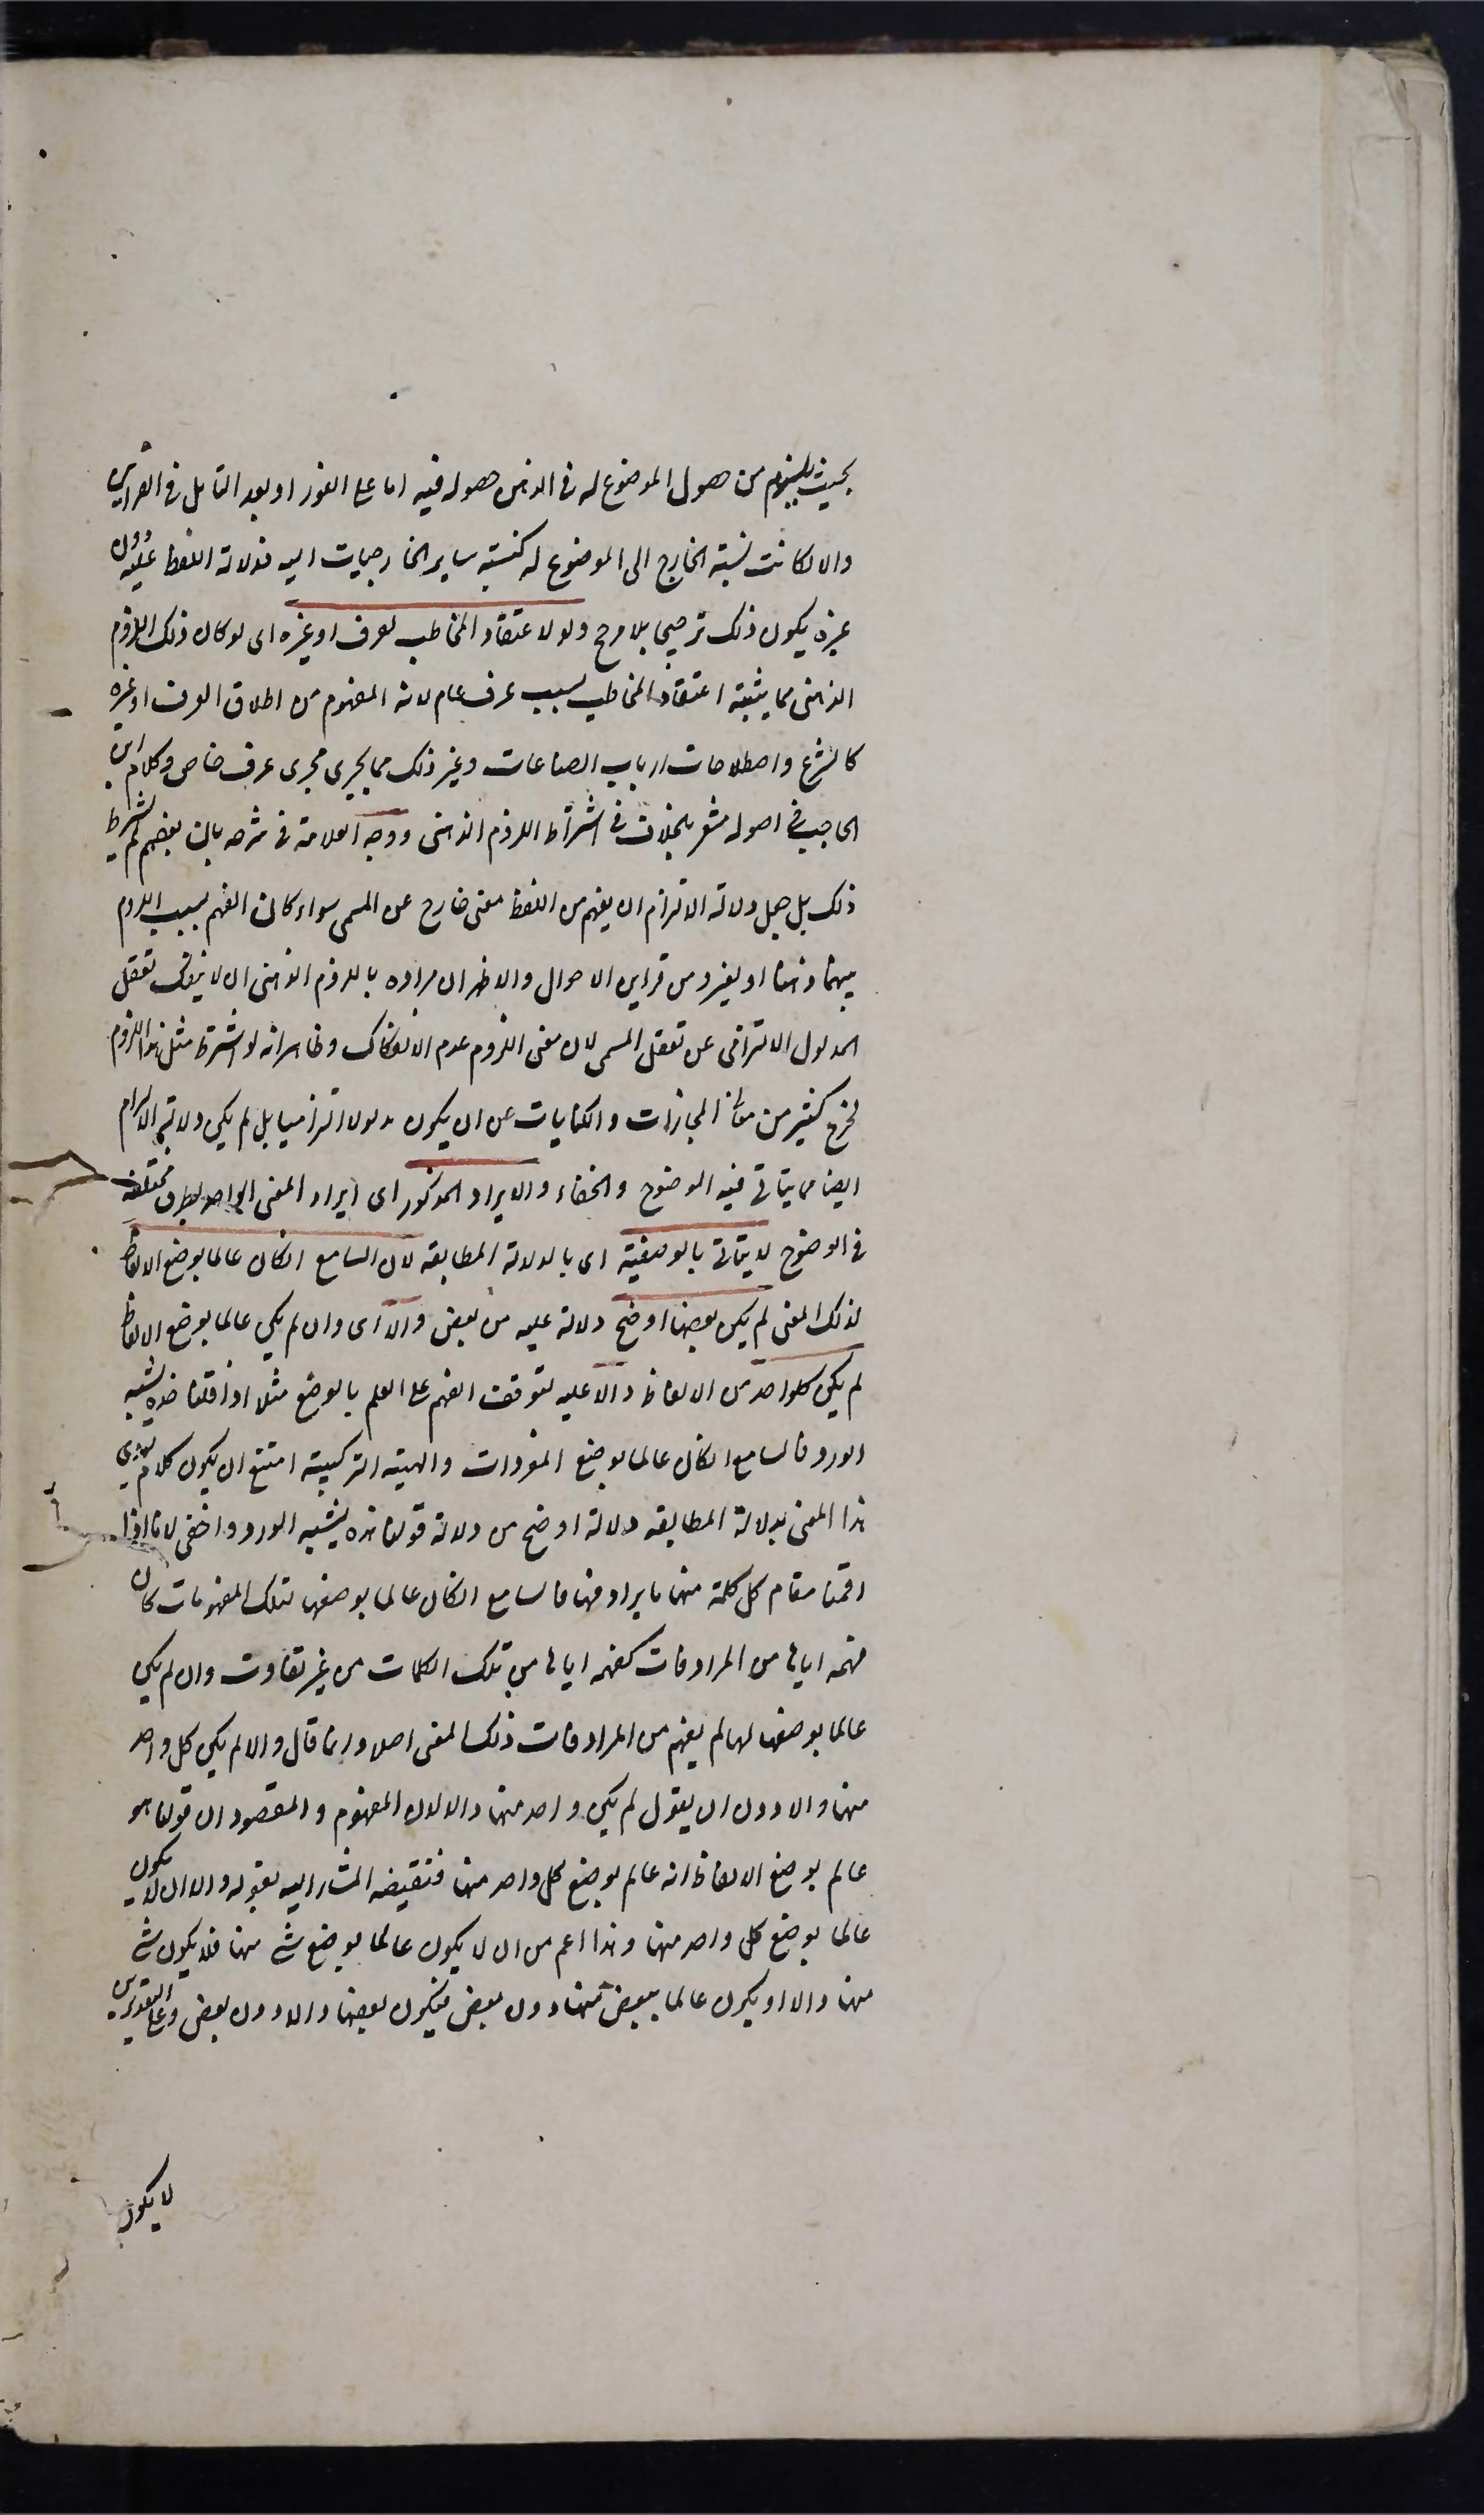 بحيث يلزم من حصول الموضوع له فى الذهن حصوله فيه اما على الفور او بعد التامل فى القراين
والا لكانت نسبة الخارج الى الموضوع له كنسبة ساير الخارجيات اليه فدلالة اللفظ عليه دون
غيره يكون ذلك ترجيحا بلا مرجح ولو لاعتقاد المخاطب لعرف او غيره اى لو كان ذلك اللزوم
الذهنى مما يثبته اعتقاد المخاطب بسبب عرف عام لانه المفهوم من اطلاق العرف او غيره
كالشرع واصطلاحات ارباب الصناعات وغير ذلك مما يجرى مجرى عرف خاص وكلام ابن
الحاجب فى اصوله مشعر بالخلاف فى اشتراط اللزوم الذهنى ووجه العلامة فى شرحه بان بعضهم لم يشترط
ذلك بل جعل دلالة الالتزام ان يفهم من اللفظ معنى خارج عن المسمى سواء كان الفهم بسبب اللزوم
بينهما ذهنا او بغيره من قراين الاحوال والاظهر ان مراده باللزوم الذهنى ان لا ينفك تعقل
المدلول الالتزامى عن تعقل المسمى لان معنى اللزوم عدم الانفكاك وظاهر انه لو اشترط مثل هذا اللزوم
لخرج كثير من معانى المجازات والكنايات عن ان يكون مدلولا التزاميا بل لم يكن دلالة الالتزام
ايضا مما يتاتى فيه الوضوح والخفاء والايراد المذكور اى ايراد المعنى الواحد بطرق مختلفة
فى الوضوح لا يتاتى بالوضعية اى بالدلالة المطابقة لان السامع انكان عالما بوضع الالفاظ
لذلك المعنى لم يكن بعضها اوضح دلالة عليه من بعض والا اى وان لم يكن عالما بوضع الالفاظ
لم يكن كلواحد من الالفاظ دالا عليه لتوقف الفهم على العلم بالوضع مثلا اذا قلنا خده يشبه
الورد فالسامع انكان عالما بوضع المفردات والهيئة التركيبية امتنع ان يكون كلام يؤدى
هذا المعنى بدلالة المطابقة دلالة اوضح من دلالة قولنا خده يشبه الورد او اخفى لانا اذا
اقمنا مقام كل كلمة منها ما يرادفها فالسامع انكان عالما بوضعها لتلك المفهومات كان
فهمه اياها من المرادفات كفهمه اياها من تلك الكلمات من غير تفاوت وان لم يكن
عالما بوضعها لها لم يفهم من المرادفات ذلك المعنى اصلا وانما قال والا لم يكن كل واحد
منها دالا دون ان يقول لم يكن واحد منها دالا لان المفهوم والمقصود ان قولنا هو
عالم بوضع الالفاظ انه عالم بوضع كل واحد منها فنقيضه المشار اليه بقوله والا ان لا يكون
عالما بوضع كل واحد منها وهذا اعم من ان لا يكون عالما بوضع شئ منها فلا يكون شئ
منها دالا او يكون عالما ببعض منها دون بعض فيكون بعضها دالا دون بعض وعلى التقديرين
لا يكون